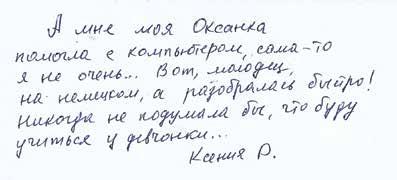 А мне моя Оксанка
помогла с компьютером, сама-то
я не очень... Вот, молодец,
на немецком, а разобралась быстро!
Никогда не подумала бы, что буду
учиться у девчонки...
Ксения Р.